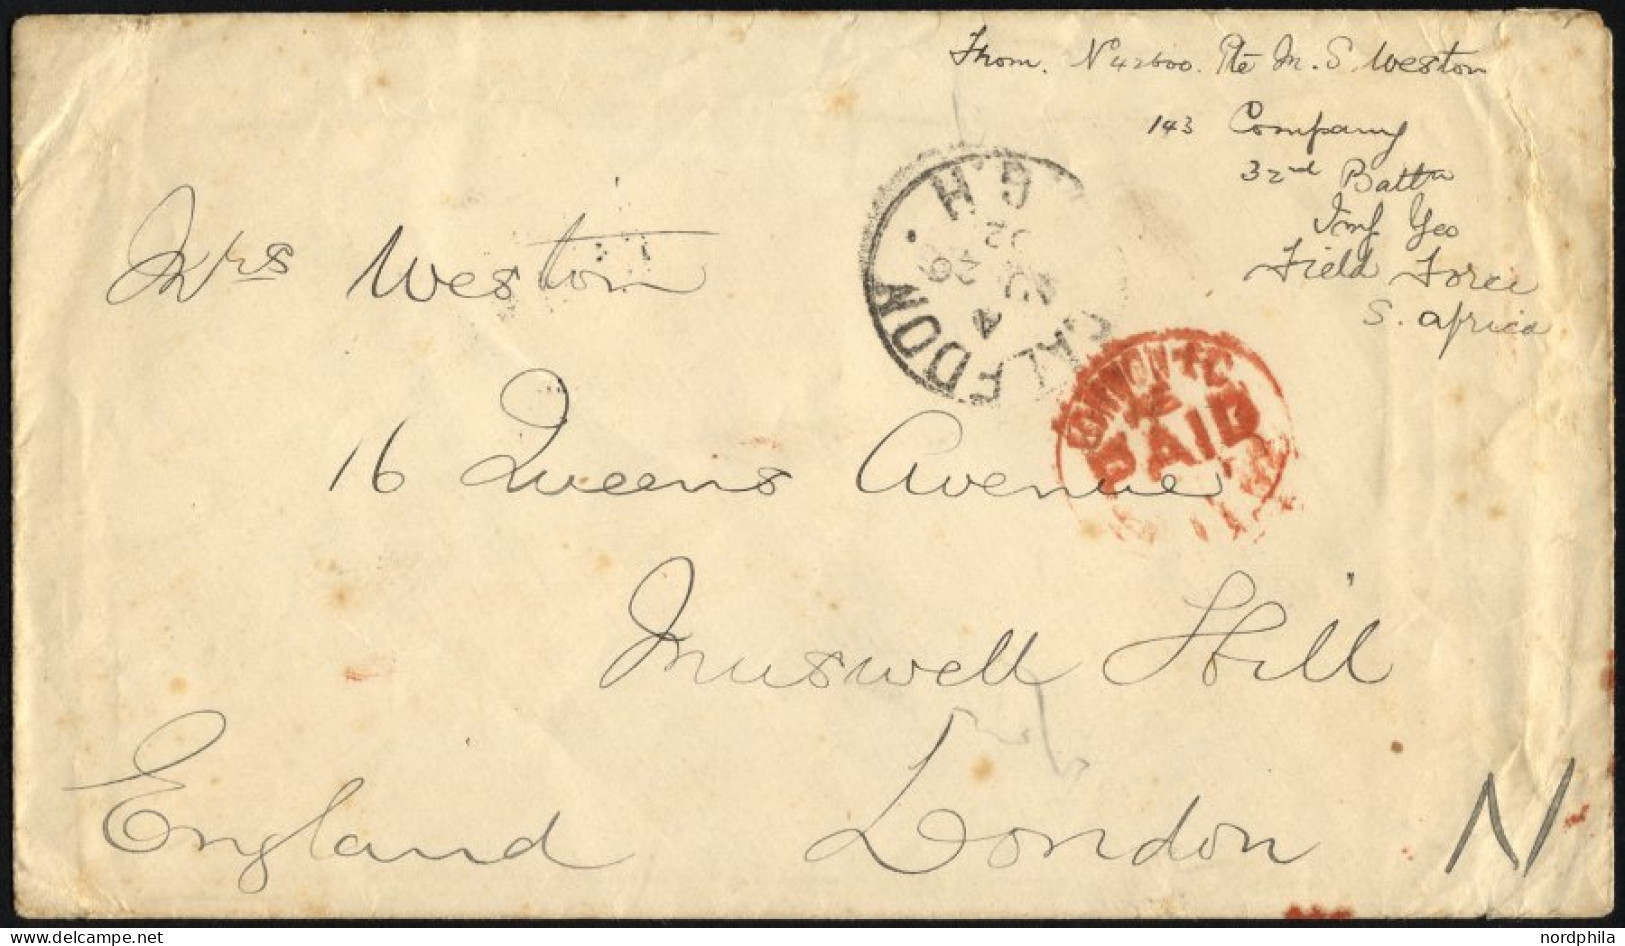 From. N 42600. Pte M. S. Weston
143 Company
32nd Battn
Imp Yeo
Field Force
S. Africa
C.G.H.
CALEDON
26
02
PAID
Mrs Weston
16 Queens Avenue
Muswell Hill
London
England
N
nordphila
delcampe.net